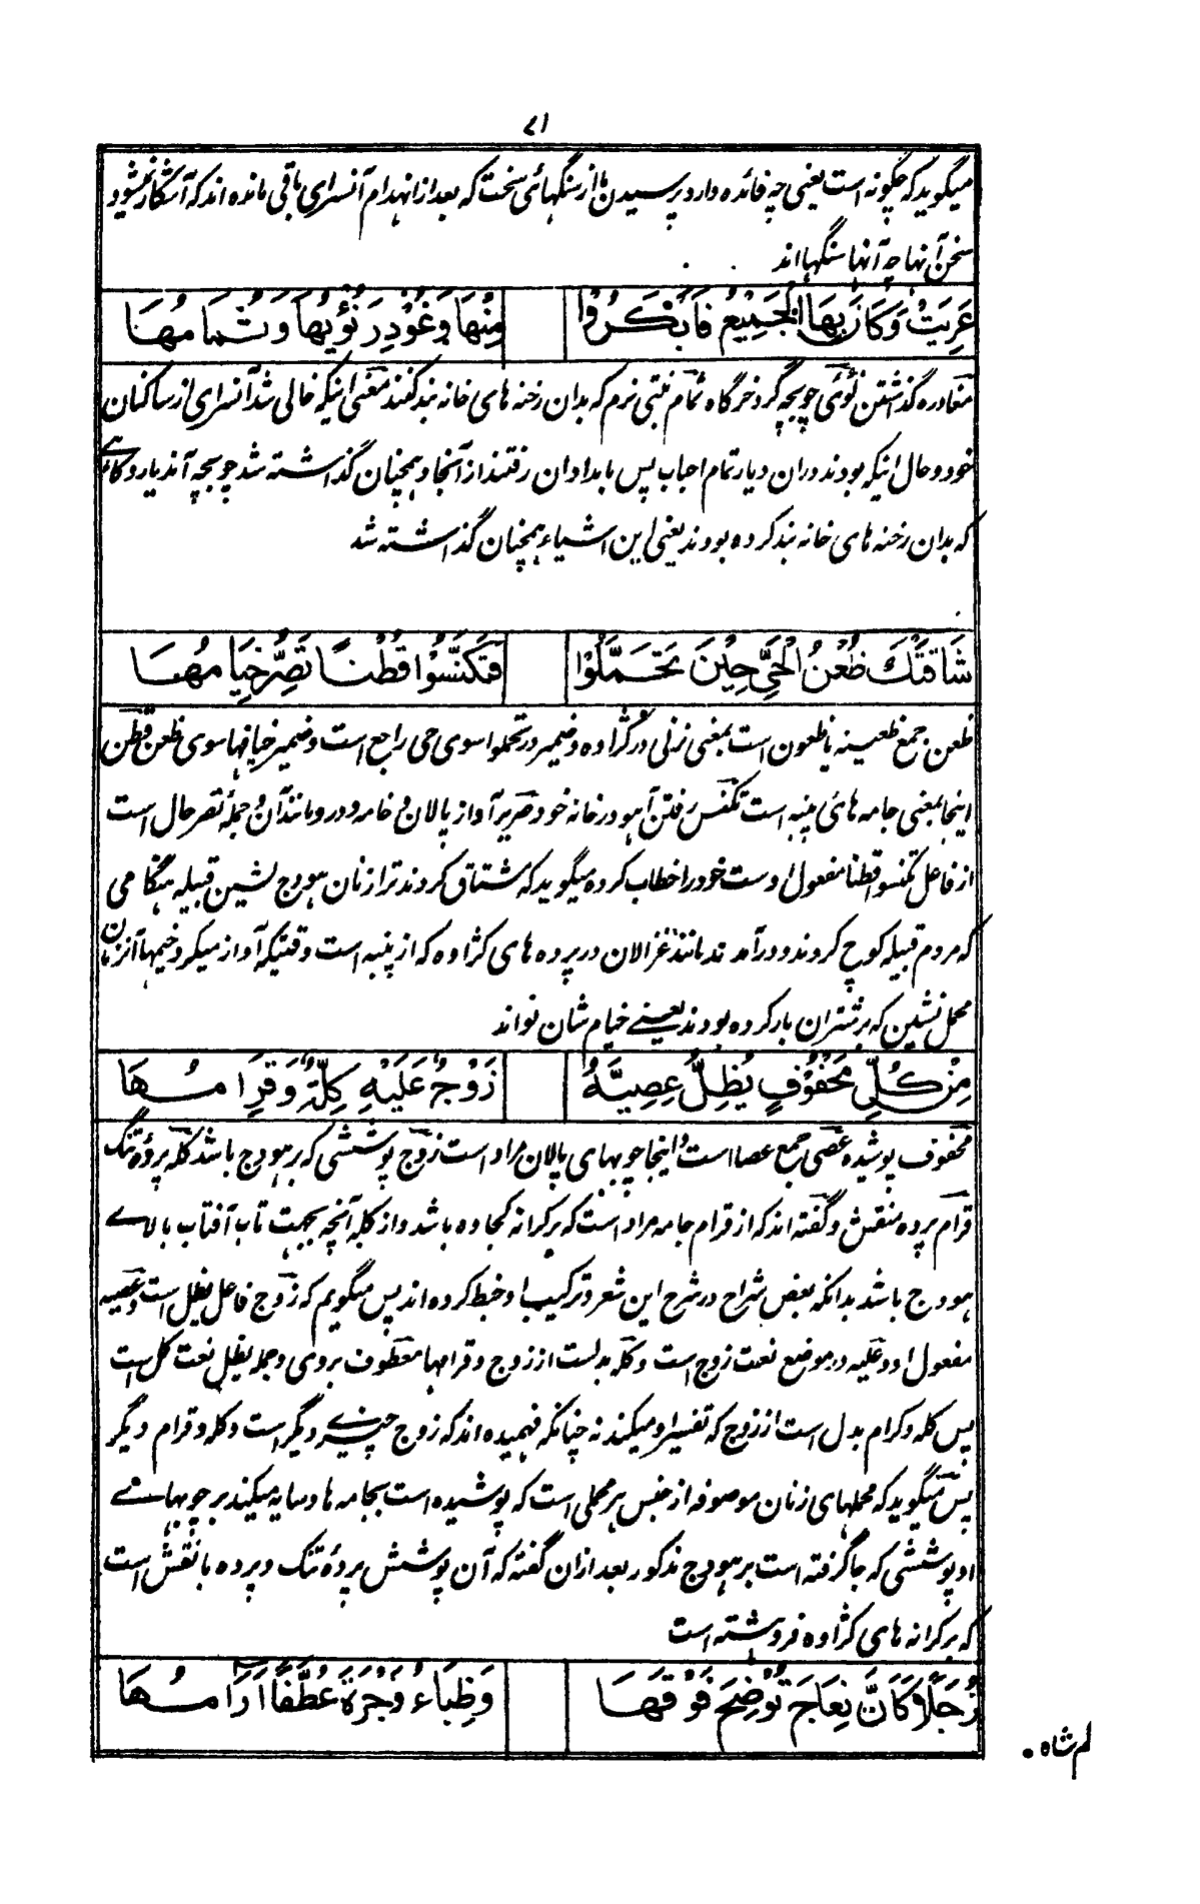 ٧١
میگوید که چگونه است یعنی چه فائده دارد پرسیدن ما از سنگهائی سخت که بعد از انهدام آنسرای باقی مانده اند که آشکار نمیشود
سخن آنها چه آنها سنگها اند
عَرِيَتْ وَكَانَ بِهَا الْجَمِيْعُ فَاَبْكَرُوْا مِنْهَا وَغُوْدِرَ نُؤْيُهَا وَثُمَامُهَا
مغادره گذاشتن نُؤی جویچه گرد خرگاه ثمام نبتی نرم که بدان رخنه های خانه بند کنند معنی اینکه خالی شد آنسرای از ساکنان
خود و حال اینکه بودند دران دیار تمام احباب پس بامدادان رفتند از آنجا و همچنان گذاشته شد جویچه آندیار و گاهے
که بدان رخنه های خانه بند کرده بودند یعنی این اشیاء همچنان گذاشته شد
شَاقَتْكَ ظُعْنُ الْحَيِّ حِيْنَ تَحَمَّلُوْا فَتَكَنَّسُوْا قُطْنًا تَصِرُّ خِيَامُهَا
ظعن جمع ظعینه یا ظعون است بمعنی زنی در کژاوه و ضمیر در تحملوا سوی حی راجع است و ضمیر خیامها سوی ظعن قطن
اینجا بمعنی جامه های پنبه است تکنس رفتن آهو در خانه خود صریر آواز پالان و خامه و در و مانند آن و جمله تصر حال است
از فاعل تکنسوا قطنا مفعول اوست خود را خطاب کرده میگوید که مشتاق کردند ترا زنان هودج نشین قبیله هنگامی
که مردم قبیله کوچ کردند و در آمدند مانند غزالان در پرده های کژاوه که از پنبه است وقتیکه آواز میکرد خیمها آنزنان
محمل نشین که بر شتران بار کرده بودند یعنے خیام شان نو اند
مِنْ كُلِّ مَحْفُوْفٍ يُظِلُّ عِصِيَّهُ زَوْجٌ عَلَيْهِ كِلَّةٌ وَقِرَامُهَا
محفوف پوشیده عصی جمع عصا است و اینجا چوبهای پالان مراد است زوج پوششی که بر هودج باشد کله پردهٔ تنک
قرام پرده منقش و گفته اند که از قرام جامه مراد است که بر کرانه کجاوه باشد و از کله آنچه بجهت تاب آفتاب بالاے
هودج باشد بدانکه بعض شراح در شرح این شعر و ترکیب او خبط کرده اند پس میگویم که زوج فاعل یظل است و عصیه
مفعول او و علیه در موضع نعت زوج است و کله بدلست از زوج و قرامها معطوف بروی و جمله یظل نعت کل است
پس کله و کرام بدل است از زوج که تفسیر او میکند نه چنانکه فهمیده اند که زوج چیزے دیگر است و کله و قرام دیگر
پس میگوید که محملهای زنان موصوفه از جنس هر محملی است که پوشیده است بجامه ها و سایه میکند بر چوبهاے
او پوششی که جا گرفته است بر هودج مذکور بعد ازان گفته که آن پوشش پردهٔ تنک و پرده با نقش است
که بر کرانه های کژاوه فروهشته است
زُجَلًا كَاَنَّ نِعَاجَ تُوْضِحَ فَوْقَهَا وَظِبَاءَ وَجْرَةَ عُطَّفًا اَرَامُهَا